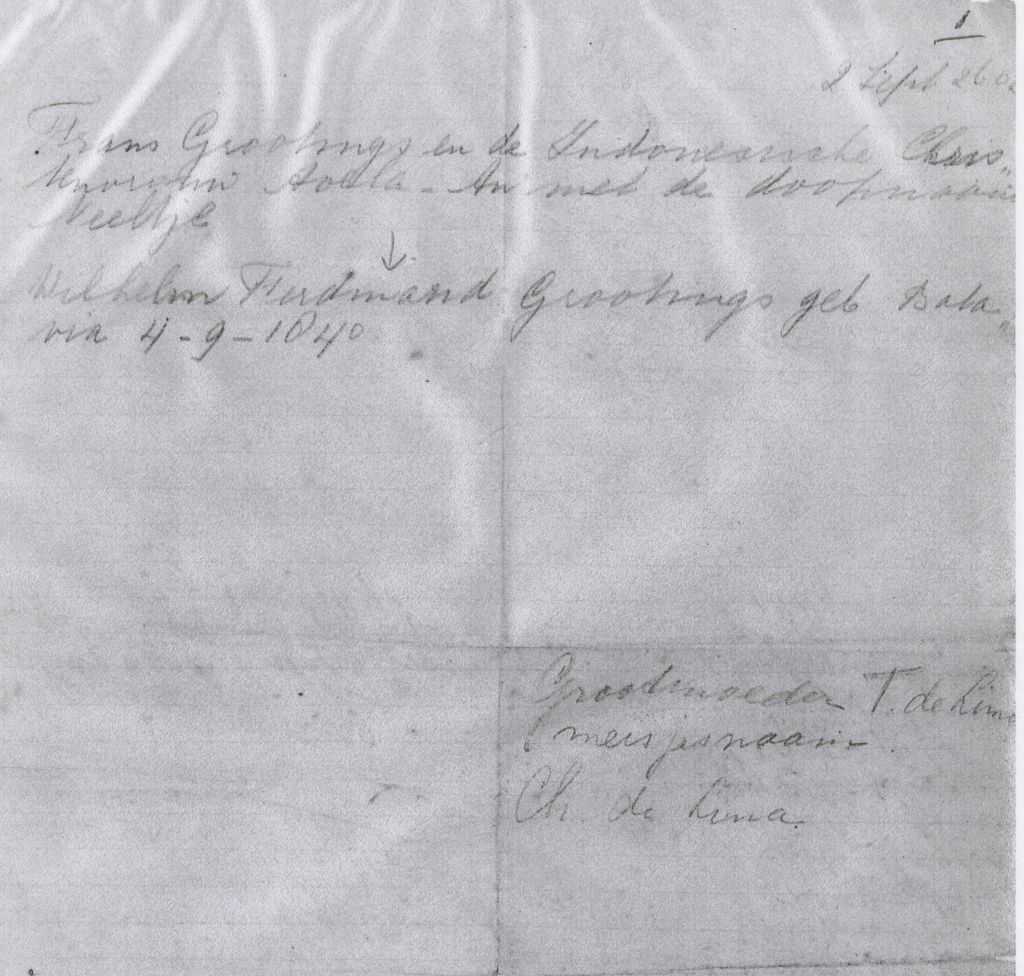 1
2 Sept
Frans Grootings en de Indonesische Chris„
Aoela-An met de doopnaam
Neeltje
Wilhelm Ferdinand Grootings geb Bata„
via 4-9-1840
Grootmoeder T. de Lima
meisjesnaam
Ch. de Lima